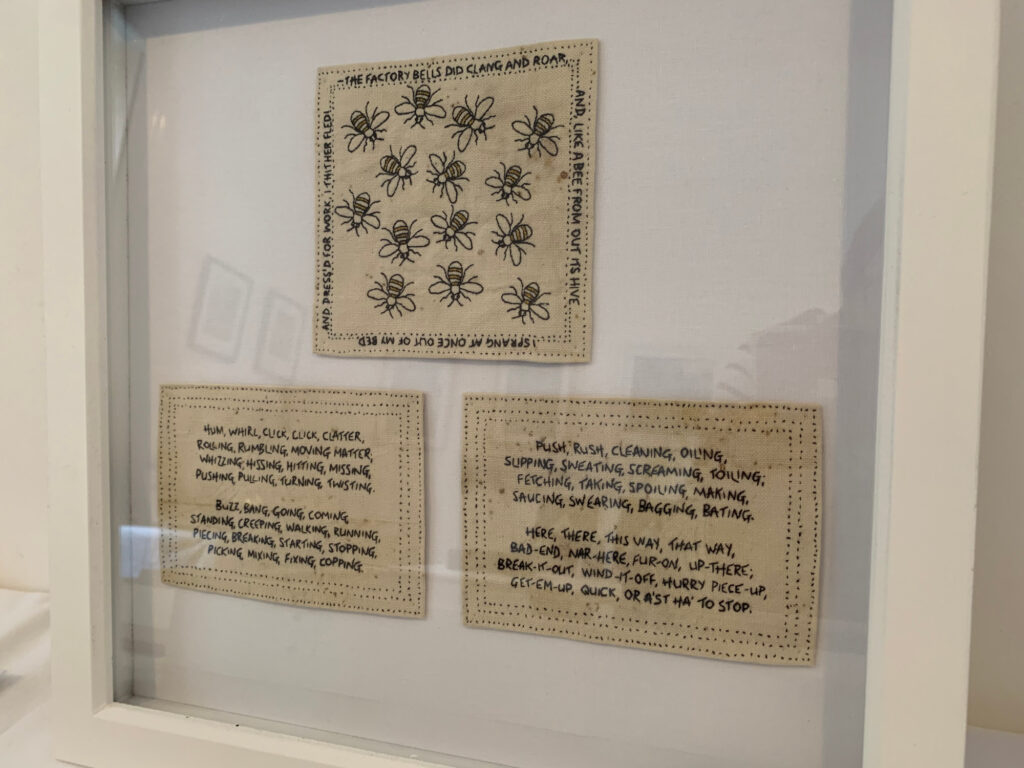 -THE FACTORY BELLS DID CLANG AND ROAR,
AND, LIKE A BEE FROM OUT ITS HIVE
I SPRANG AT ONCE OUT OF MY BED
AND PRESS'D FOR WORK, I THITHER FLED!
HUM, WHIRL, CLICK, CLICK, CLATTER,
ROLLING, RUMBLING, MOVING MATTER,
WHIZZING, HISSING, HITTING, MISSING,
PUSHING, PULLING, TURNING, TWISTING.
BUZZ, BANG, GOING, COMING,
STANDING, CREEPING, WALKING, RUNNING,
PIECING, BREAKING, STARTING, STOPPING,
PICKING, MIXING, FIXING, COPPING.
PUSH, RUSH, CLEANING, OILING,
SLIPPING, SWEATING, SCREAMING, TOILING;
FETCHING, TAKING, SPOILING, MAKING,
SAUCING, SWEARING, BAGGING, BATING.
HERE, THERE, THIS WAY, THAT WAY,
BAD-END, NAR-HERE, FUR-ON, UP-THERE;
BREAK-IT-OUT, WIND-IT-OFF, HURRY PIECE-UP,
GET-EM-UP, QUICK, OR A'ST HA' TO STOP.